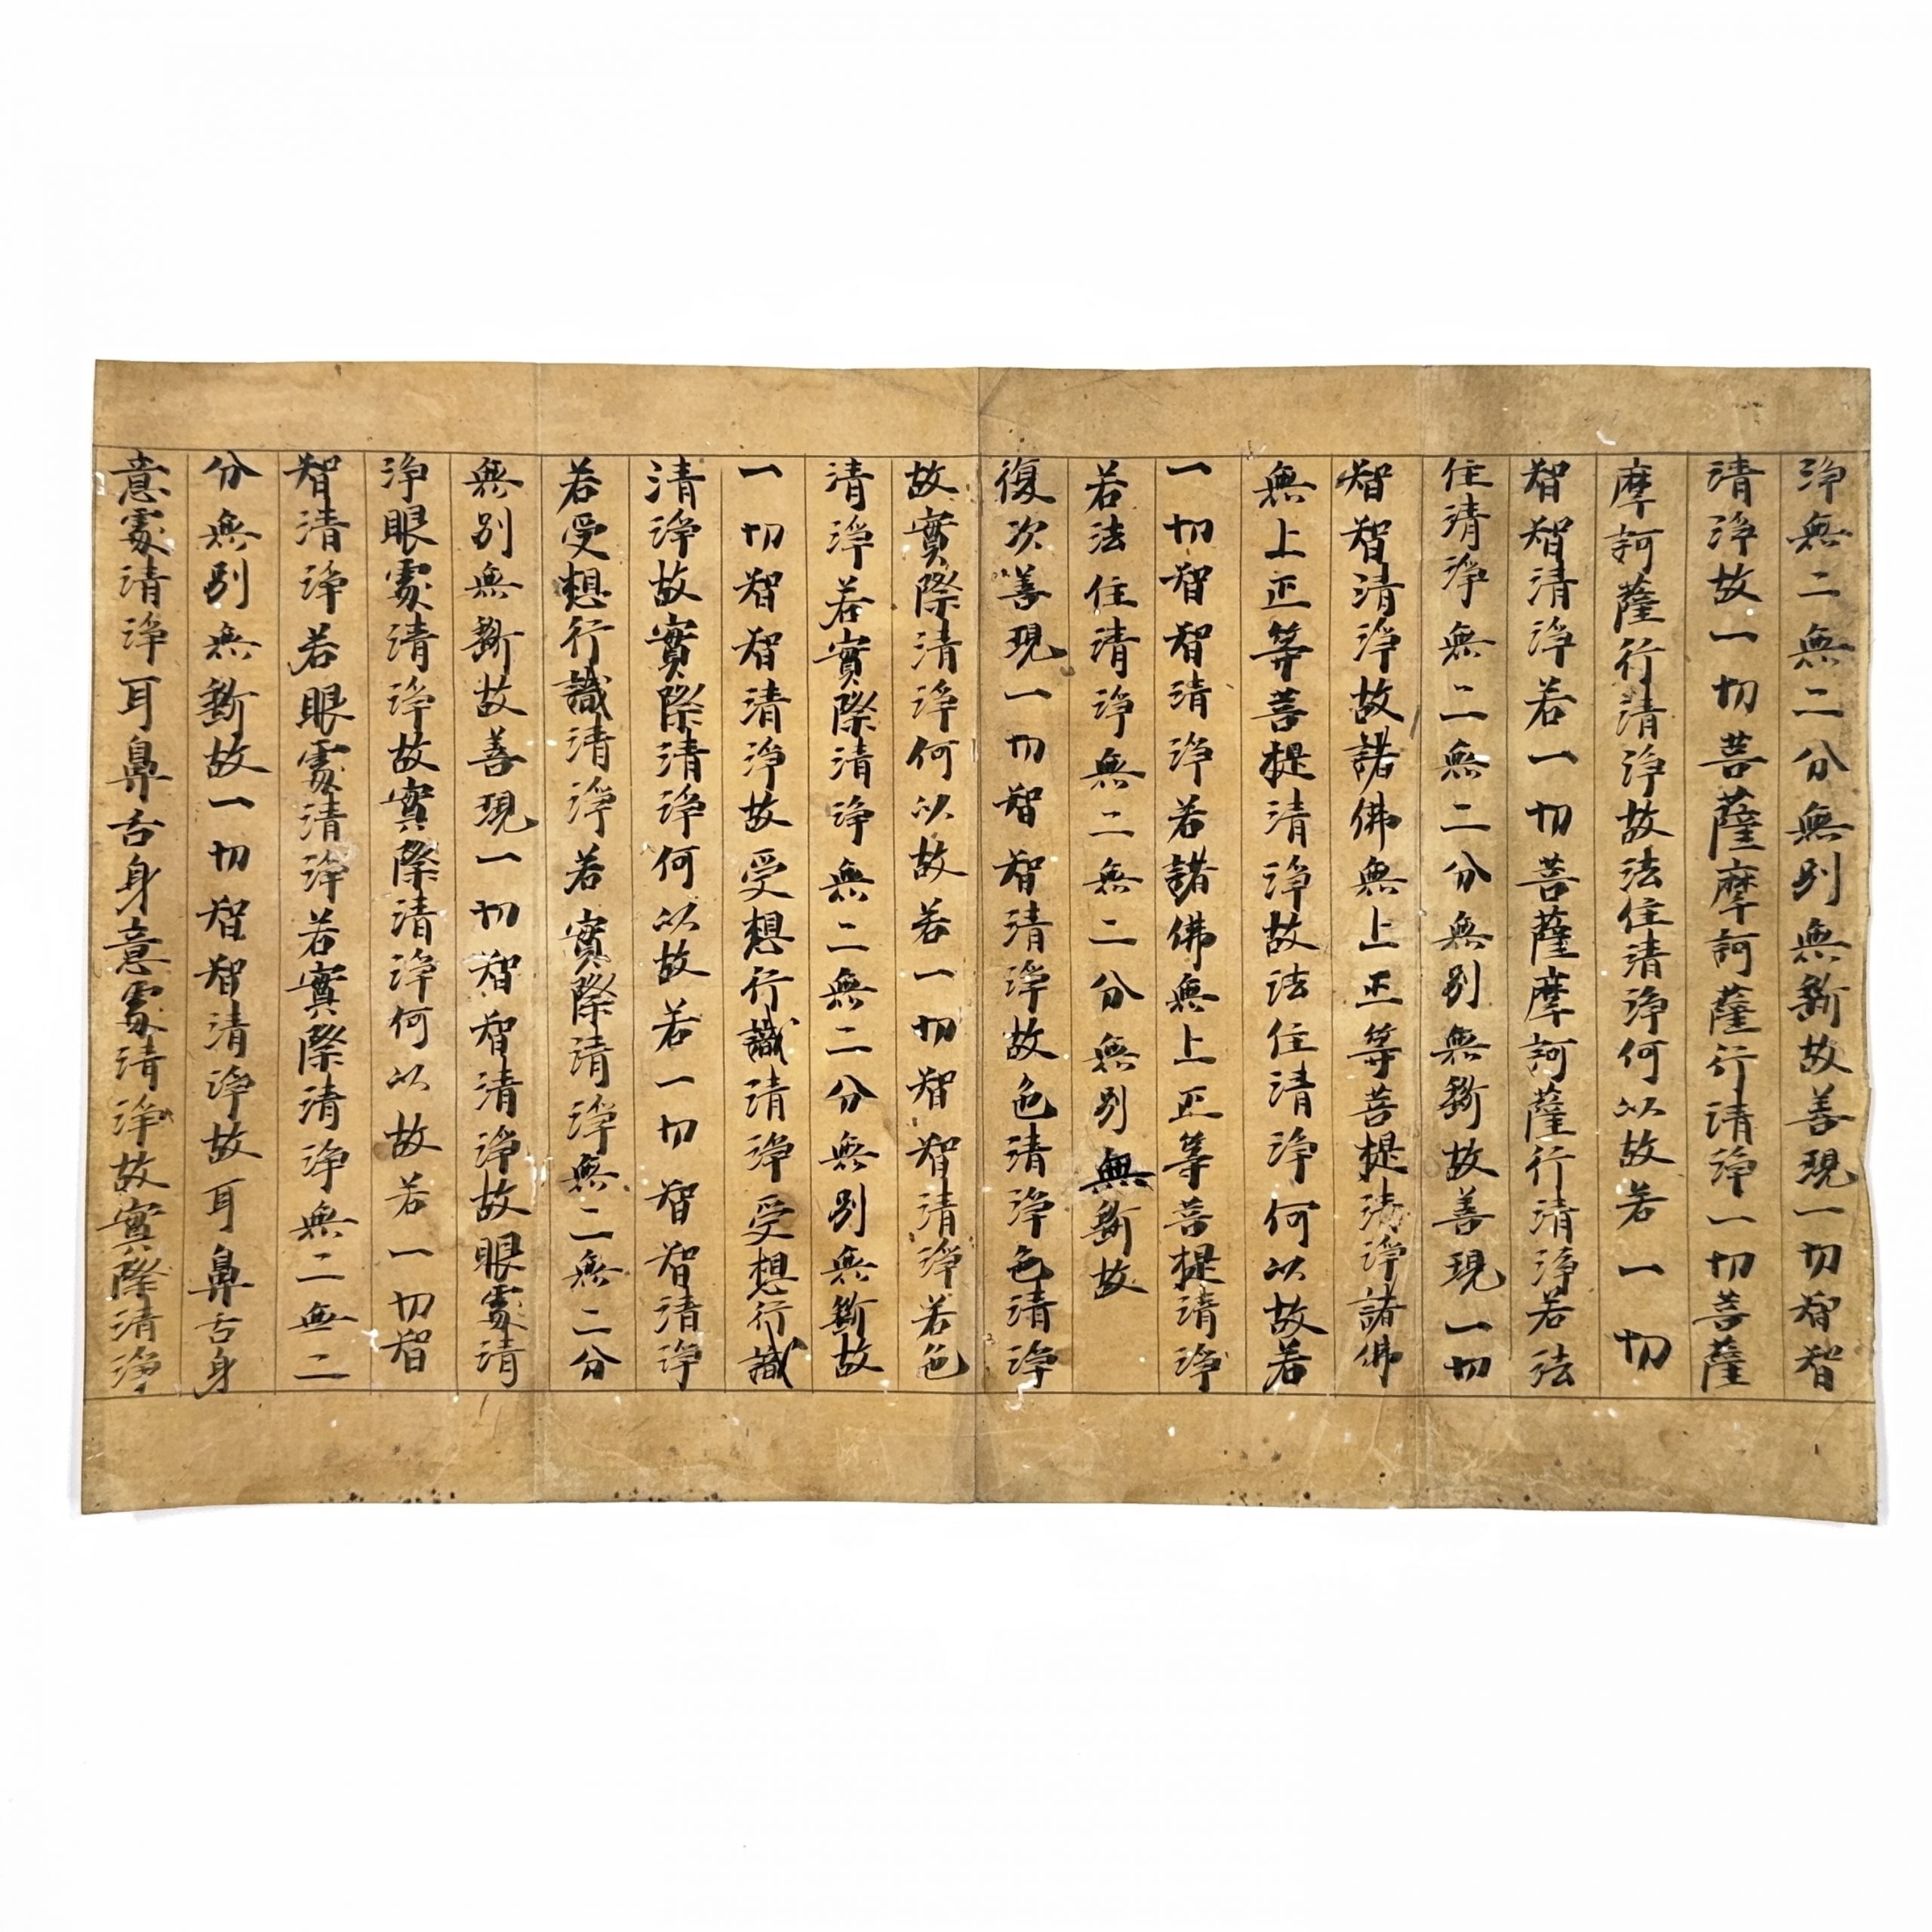 淨無二無二分無別無斷故善現一切智智
清淨故一切菩薩摩訶薩行清淨一切菩薩
摩訶薩行清淨故法住清淨何以故若一切
智智清淨若一切菩薩摩訶薩行清淨若法
住清淨無二無二分無別無斷故善現一切
智智清淨故諸佛無上正等菩提清淨諸佛
無上正等菩提清淨故法住清淨何以故若
一切智智清淨若諸佛無上正等菩提清淨
若法住清淨無二無二分無別無斷故
復次善現一切智智清淨故色清淨色清淨
故實際清淨何以故若一切智智清淨若色
清淨若實際清淨無二無二分無別無斷故
一切智智清淨故受想行識清淨受想行識
清淨故實際清淨何以故若一切智智清淨
若受想行識清淨若實際清淨無二無二分
無別無斷故善現一切智智清淨故眼處清
淨眼處清淨故實際清淨何以故若一切智
智清淨若眼處清淨若實際清淨無二無二
分無別無斷故一切智智清淨故耳鼻舌身
意處清淨耳鼻舌身意處清淨故實際清淨